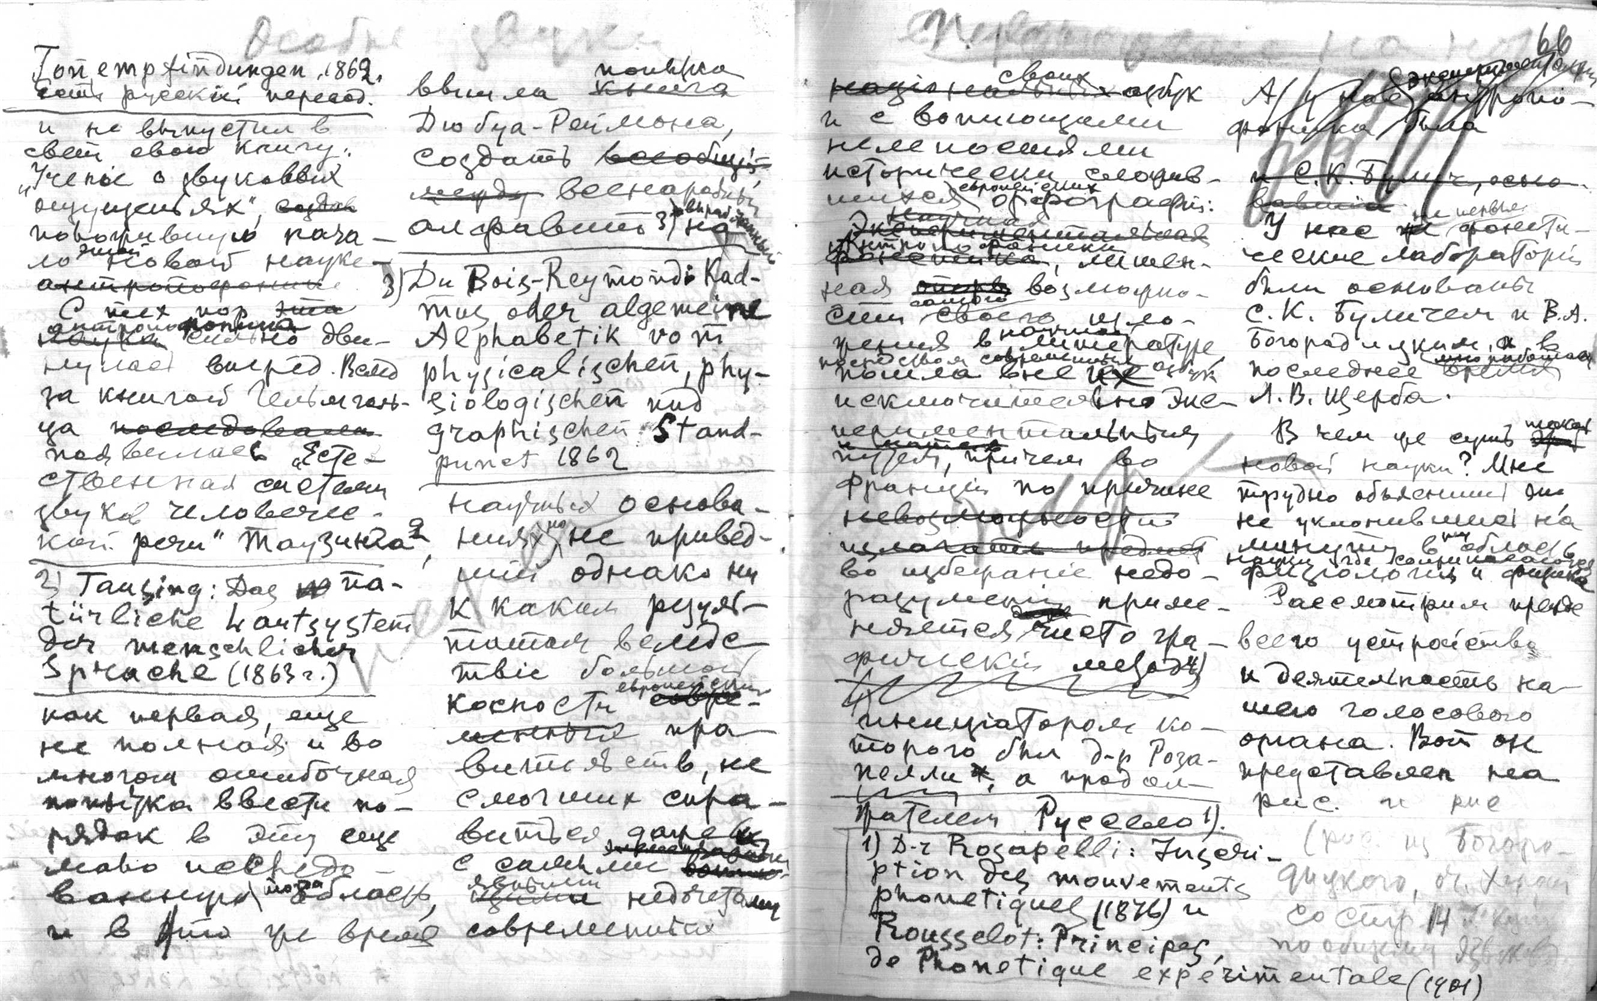 Особые звуки
Tonempfindungen, 1862.
есть русский перевод.
и не выпустил в
свет свою книгу:
"Учение о звуковых
ощущеньях",
положившую нача-
ло этой новой науке
антропофонике
С тех пор эта
антропофоника
наука сильно дви-
нулась вперед. Вслед
за книгой Гельмголь-
ца последовала
появилась "Есте-
ственная система
звуков человечес-
кой речи" Таузинга 2,
2) Tausing: Das na-
türliche Lautsystem
der menschlicher
Sprache (1863 г.)
как первая, еще
не полная и во
многом ошибочная
попытка ввести по-
рядок в эту еще
мало исследо-
ванную тогда область,
и в это же время
попытка
вышла книга
Дюбуа-Реймона,
создать всеобщий
между всенародный
алфавит 3) на
3) Du Bois-Reymond: Kad-
mus oder algemeine
Alphabetik vom
physicalischen, phy-
siologischen und
graphischen Stand-
punct 1862
научных основа-
ниях, но не привед-
ший однако ни
к каким резуль-
татам вследс-
твие большой
косности европейских
совре-
менных пра-
вительств, не
смогших спра-
виться даже
с самыми
явными недочетами
современных
66
своих
национальных азбук
и с вопиющими
нелепостями
исторически сложив-
шихся европейских орфографий.
научная
Экспериментальная
Антропофоника
фонетика, лишен-
ная опоры возмож-
сти самого своего изло-
жения в научной литературе
посредством современных азбук
пошла вне их
исключительно экс-
периментальным
путем, причем во
Франции по причине
невозможности
излагать предмет
во избежание недо-
разумений приме-
няется чисто гра-
фический метод 4)
инициатором ко-
торого был д-р Роза-
пелли, а продол-
жателем Русело 1).
1) D-r Rosapelli: Inscri-
ption des mouvements
phonetiques (1876) и
Rousselot: Principes
de Phonetique expérimentale (1901)
А у нас экспериментальная антропо-
фоника была
и С.К. Булич, осно-
вавший
У нас же первые фонети-
ческие лаборатории
были основаны
С.К. Буличем и В.А.
Богородицким, а в
последнее время много работает
Л.В. Щерба.
В чем же суть такой
новой науки? Мне
трудно объяснить это
не уклонившись на
минуту в область
физиологии и физики
Рассмотрим прежде
всего устройство
и деятельность на-
шего голосового
органа. Вот он
представлен на
рис. и рис
(рис. из Богоро-
дицкого,
со стр 14
по общему языковед.